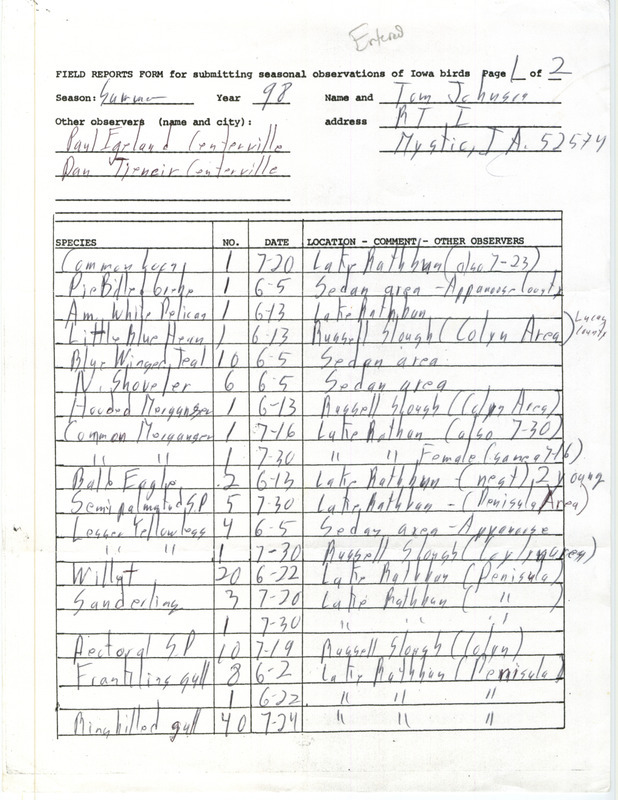 Entered
FIELD REPORTS FORM for submitting seasonal observations of Iowa birds Page 1 of 2
Season: Summer Year 98 Name and Tom Johnson
Other observers (name and city): address RT 1
Paul Egeland Centerville Mystic, IA. 52574
Dan Centerville
SPECIES NO. DATE LOCATION - COMMENT/- OTHER OBSERVERS
Common Loon 1 7-20 Lake Rathbun (also 7-23)
Pie Billed Grebe 1 6-5 Sedan area - Appanoose County
Am. White Pelican 1 6-13 Lake Rathbun
Little Blue Heron 1 6-13 Russell Slough (Colyn Area) Lucas County
Blue Winged Teal 10 6-5 Sedan area
N. Shoveler 6 6-5 Sedan area
Hooded Merganser 1 6-13 Russell Slough (Colyn Area)
Common Merganser 1 7-16 Lake Rathbun (also 7-30)
" " 1 7-30 " " Female (same 7-16)
Bald Eagle 2 6-13 Lake Rathbun - (nest) 2 young
Semipalmated S.P 5 7-30 Lake Rathbun - (Penisula Area)
Lesser Yellowlegs 4 6-5 Sedan area - Appanoose
" " 1 7-30 Russell Slough (Colyn area)
Willet 20 6-22 Lake Rathbun (Penisula)
Sanderling 3 7-20 Lake Rathbun ( " )
1 7-30 " " "
Pectoral S.P 10 7-19 Russell Slough (Colyn)
Franklins gull 8 6-2 Lake Rathbun (Penisula)
1 6-22 " " "
Ringbilled gull 40 7-24 " " "